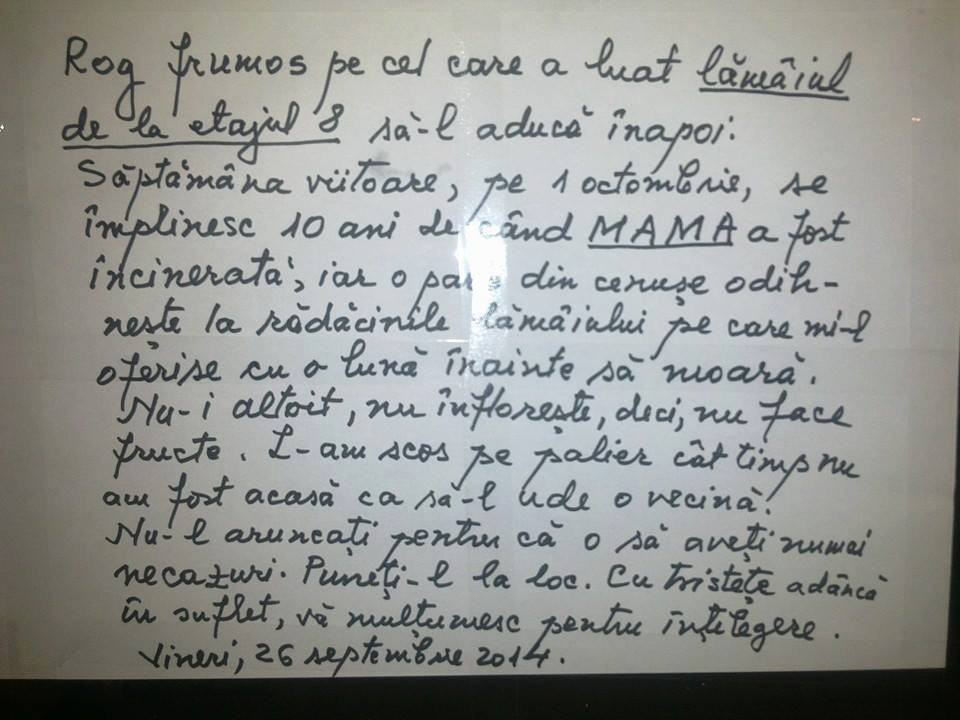 Rog frumos pe cel care a luat lămâiul
de la etajul 8 să-l aducă înapoi.
Săptămâna viitoare, pe 1 octombrie, se
împlinesc 10 ani de când MAMA a fost
incinerată, iar o parte din cenușe odih-
nește la rădăcinile lămâiului pe care mi-l
oferise cu o lună înainte să moară.
Nu-i altoit, nu înflorește, deci, nu face
fructe. L-am scos pe palier cât timp nu
am fost acasă ca să-l ude o vecină.
Nu-l aruncați pentru că o să aveți numai
necazuri. Puneți-l la loc. Cu tristețe adâncă
în suflet, vă mulțumesc pentru înțelegere.
Vineri, 26 septembrie 2014.